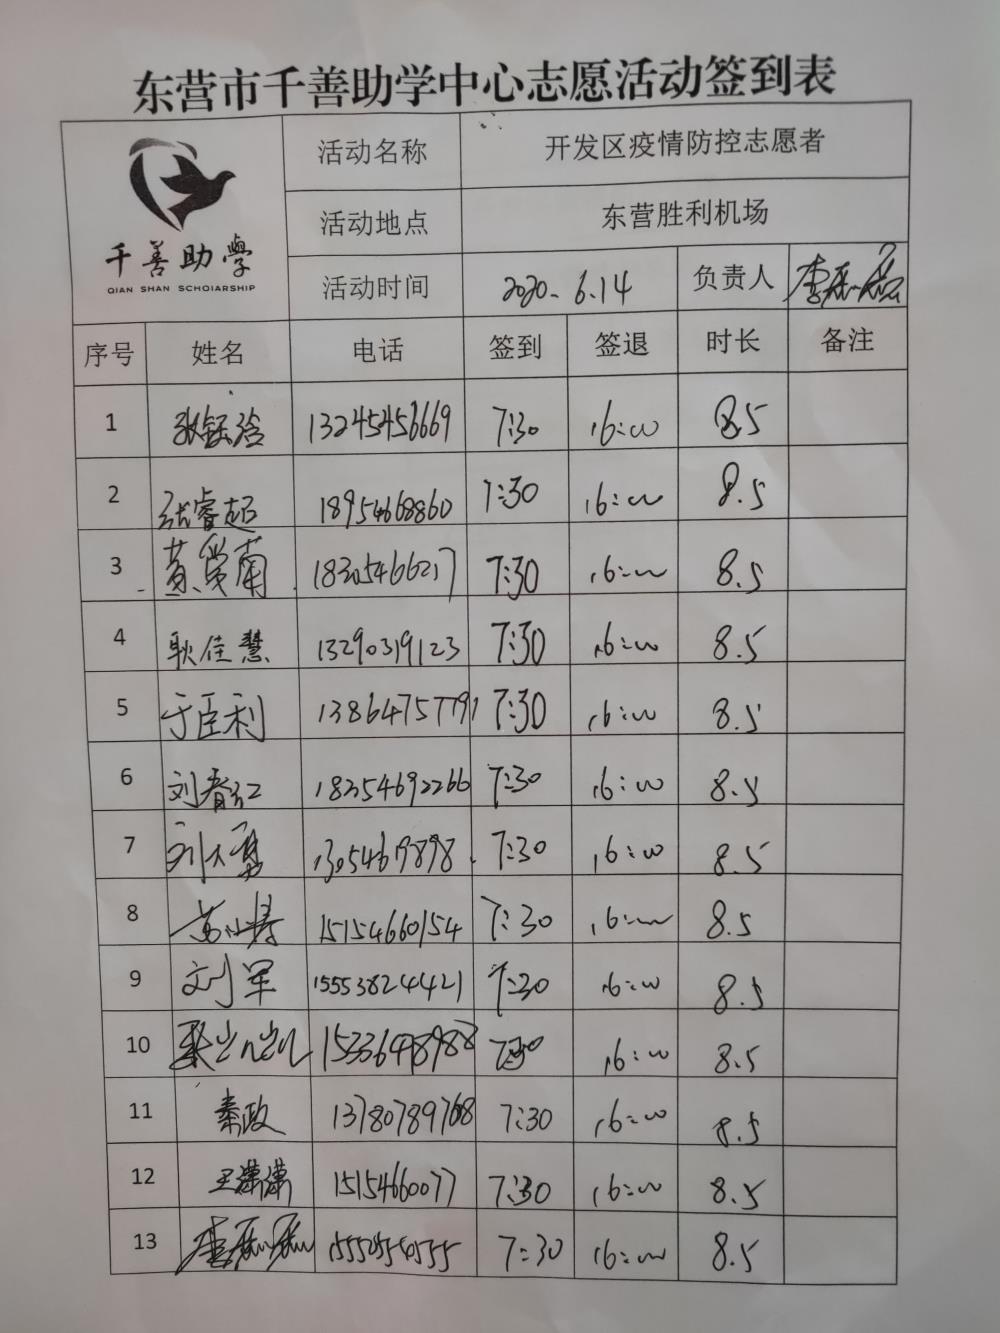 东营市千善助学中心志愿活动签到表
千善助學
QIAN SHAN SCHOLARSHIP
活动名称 开发区疫情防控志愿者
活动地点 东营胜利机场
活动时间 2020.6.14 负责人
序号 姓名 电话 签到 签退 时长 备注
1 张钰浛 13245456669 7:30 16:00 8.5
2 张睿超 18954668860 7:30 16:00 8.5
3 黄爱菊 18305466217 7:30 16:00 8.5
4 耿佳慧 13290319123 7:30 16:00 8.5
5 于臣利 13864757791 7:30 16:00 8.5
6 刘春江 18254692266 7:30 16:00 8.5
7 刘大勇 13054619898 7:30 16:00 8.5
8 苏小涛 15154660154 7:30 16:00 8.5
9 刘军 15553824421 7:30 16:00 8.5
10 15336498988 7:30 16:00 8.5
11 秦政 13780789768 7:30 16:00 8.5
12 王潇潇 15154660077 7:30 16:00 8.5
13 7:30 16:00 8.5